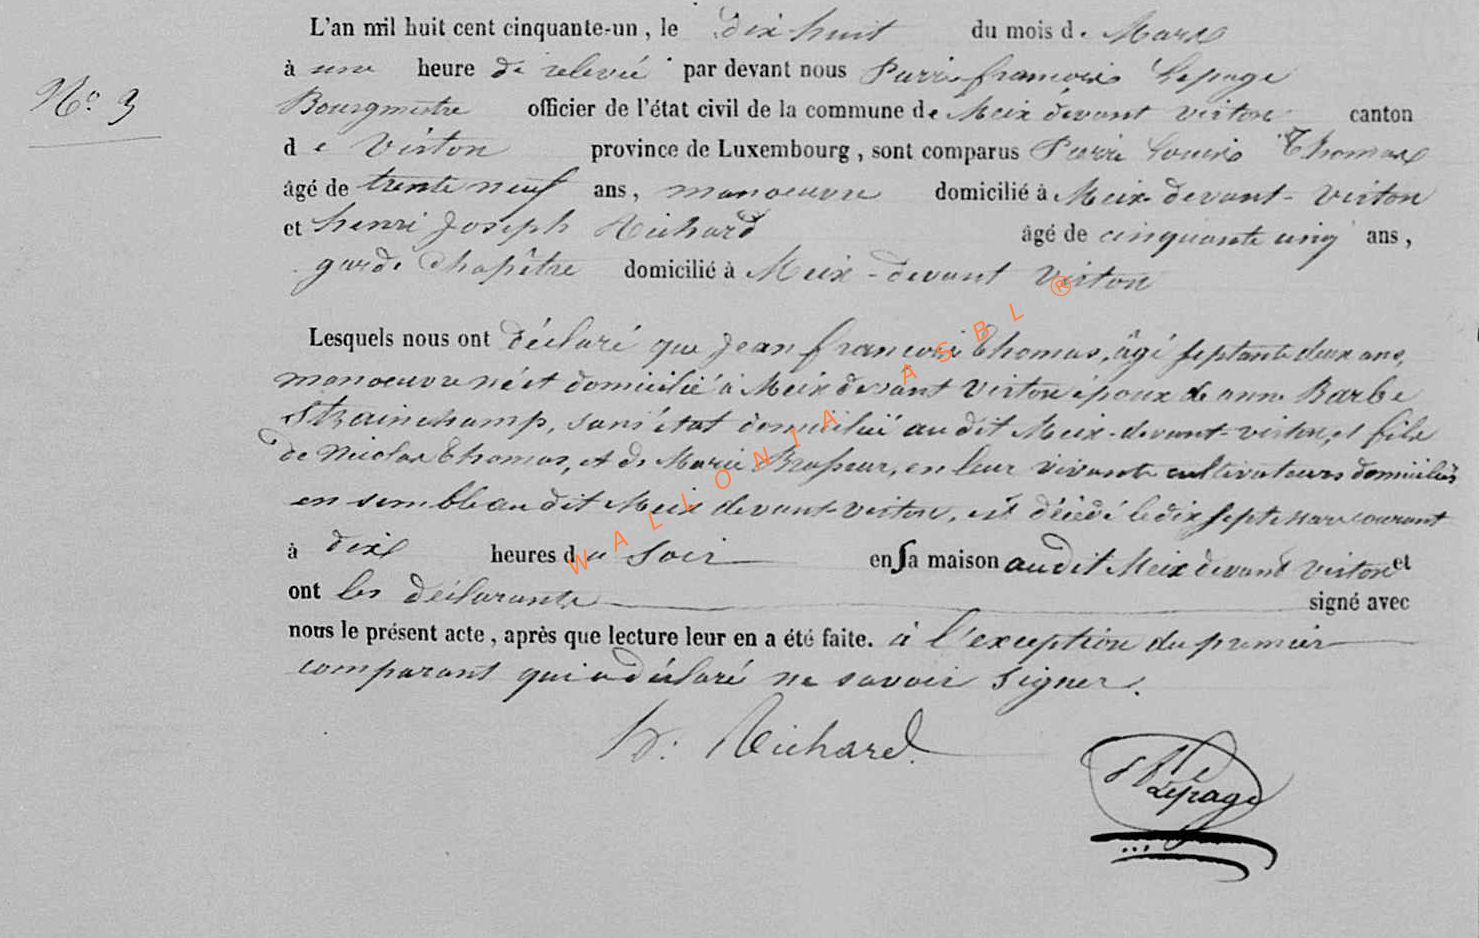 L'an mil huit cent cinquante-un, le dix huit du mois de Mars
N° 3
à une heure de relevée par devant nous Pierre françois Lepage
Bourgmestre officier de l'état civil de la commune de Meix devant virton canton
de Virton province de Luxembourg, sont comparus Pierre Louis Thomas
âgé de trente neuf ans, manoeuvre domicilié à Meix-devant-Virton
et henri Joseph Richard âgé de cinquante cinq ans,
garde Champêtre domicilié à Meix-devant Virton
Lesquels nous ont déclaré que Jean françois Thomas, âgé septante deux ans,
manoeuvre né et domicilié à Meix devant Virton époux de anne Barbe
Strainchamp, sans état domiciliée au dit Meix-devant-virton, et fils
de Nicolas Thomas, et de Marie Brasseur, en leur vivant cultivateurs domiciliés
ensemble au dit Meix devant-virton, est décédé le dix sept mars courant
à dix heures du soir en sa maison audit Meix devant virton et
ont les déclarants signé avec
nous le présent acte, après que lecture leur en a été faite. à l'exception du premier
comparant qui a déclaré ne savoir signer.
h. Richard
Lepage
WALLONIA ASBL ®